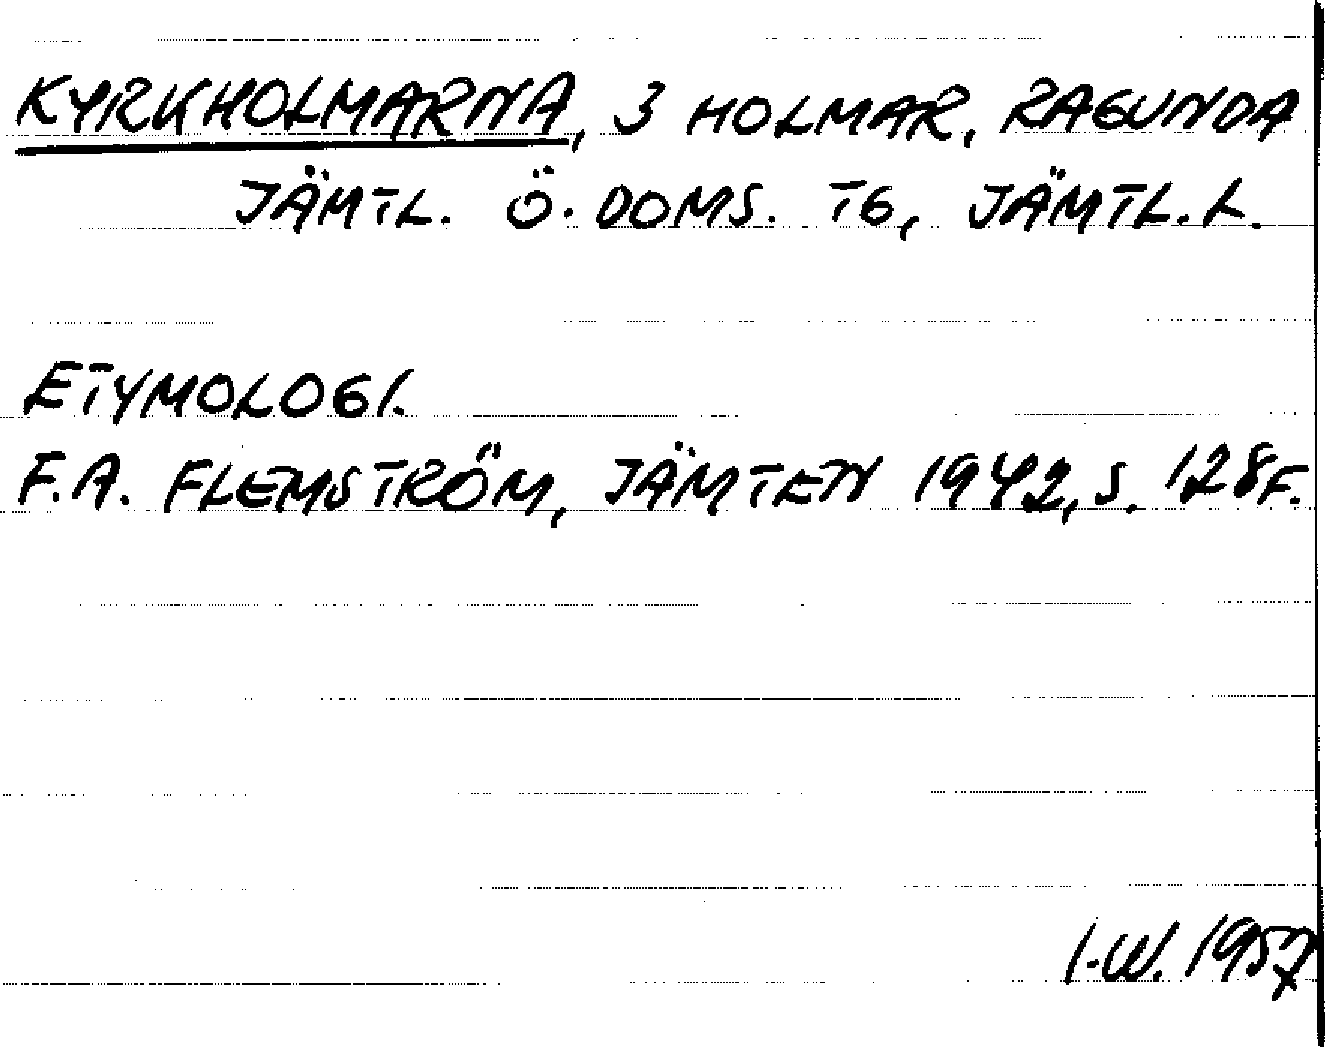 KYRKHOLMARNA, 3 HOLMAR, RAGUNDA
JÄMTL. Ö. DOMS. TG, JÄMTL. L.
ETYMOLOGI.
F.A. FLEMSTRÖM, JÄMTEN 1942, S. 128F.
I.W. 1957